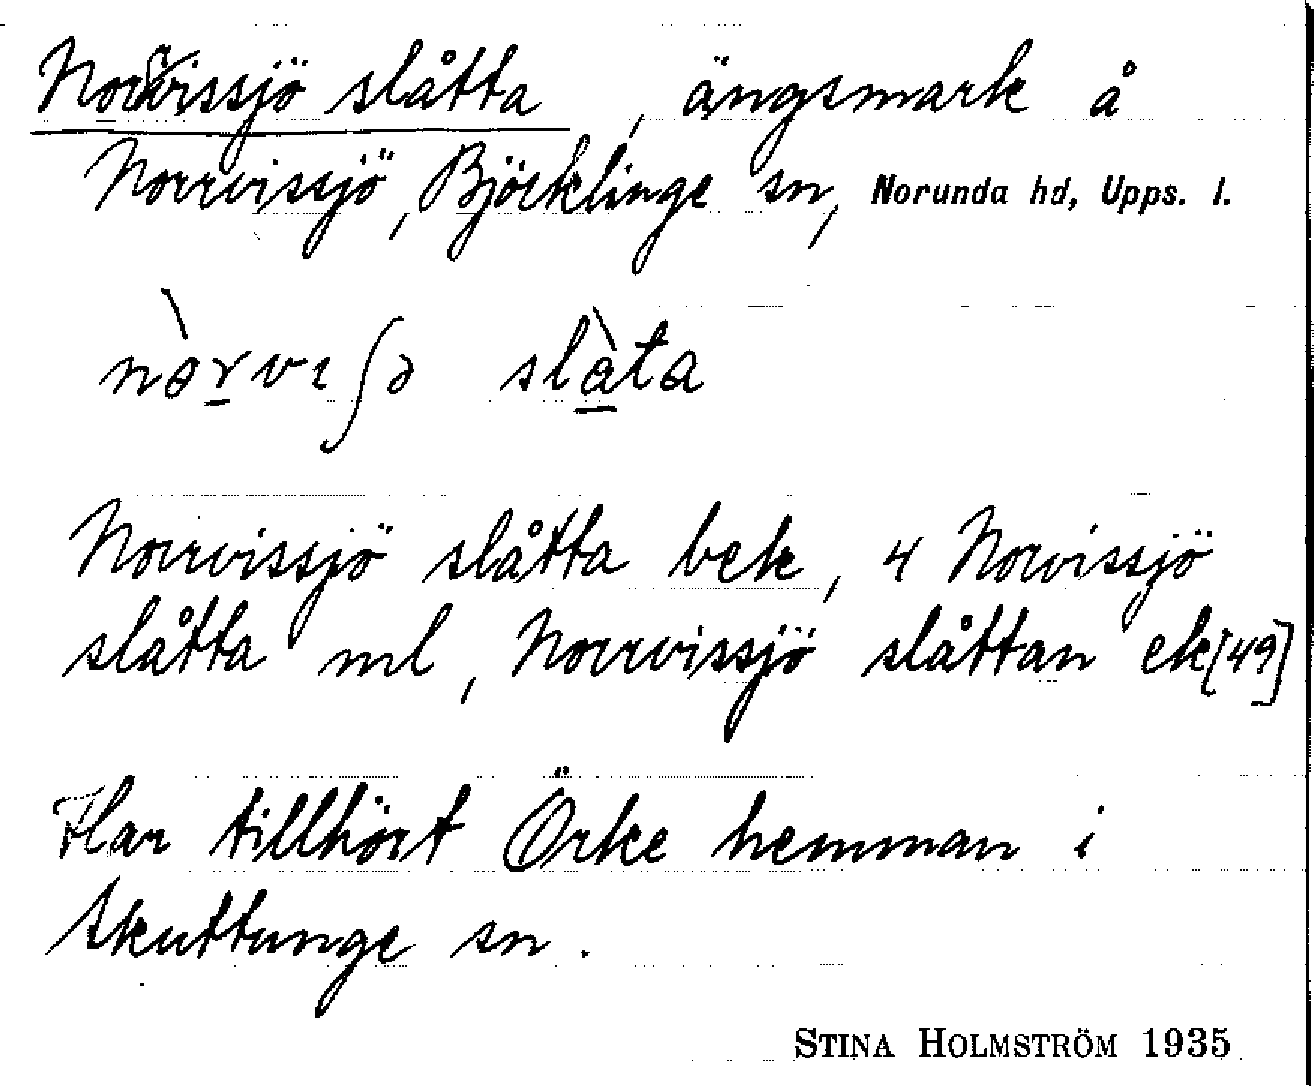 Norrvissjö slåtta, ängsmark å
Norrvissjö, Björklinge sn, Norunda hd, Upps. l.
nòrvɩʃə slàta
Norrvissjö slåtta bek, 4 Norvissjö
slåtta ml, Norrvissjö slåttan ek[49]
Har tillhört Örke hemman i
Skuttunge sn.
STINA HOLMSTRÖM 1935